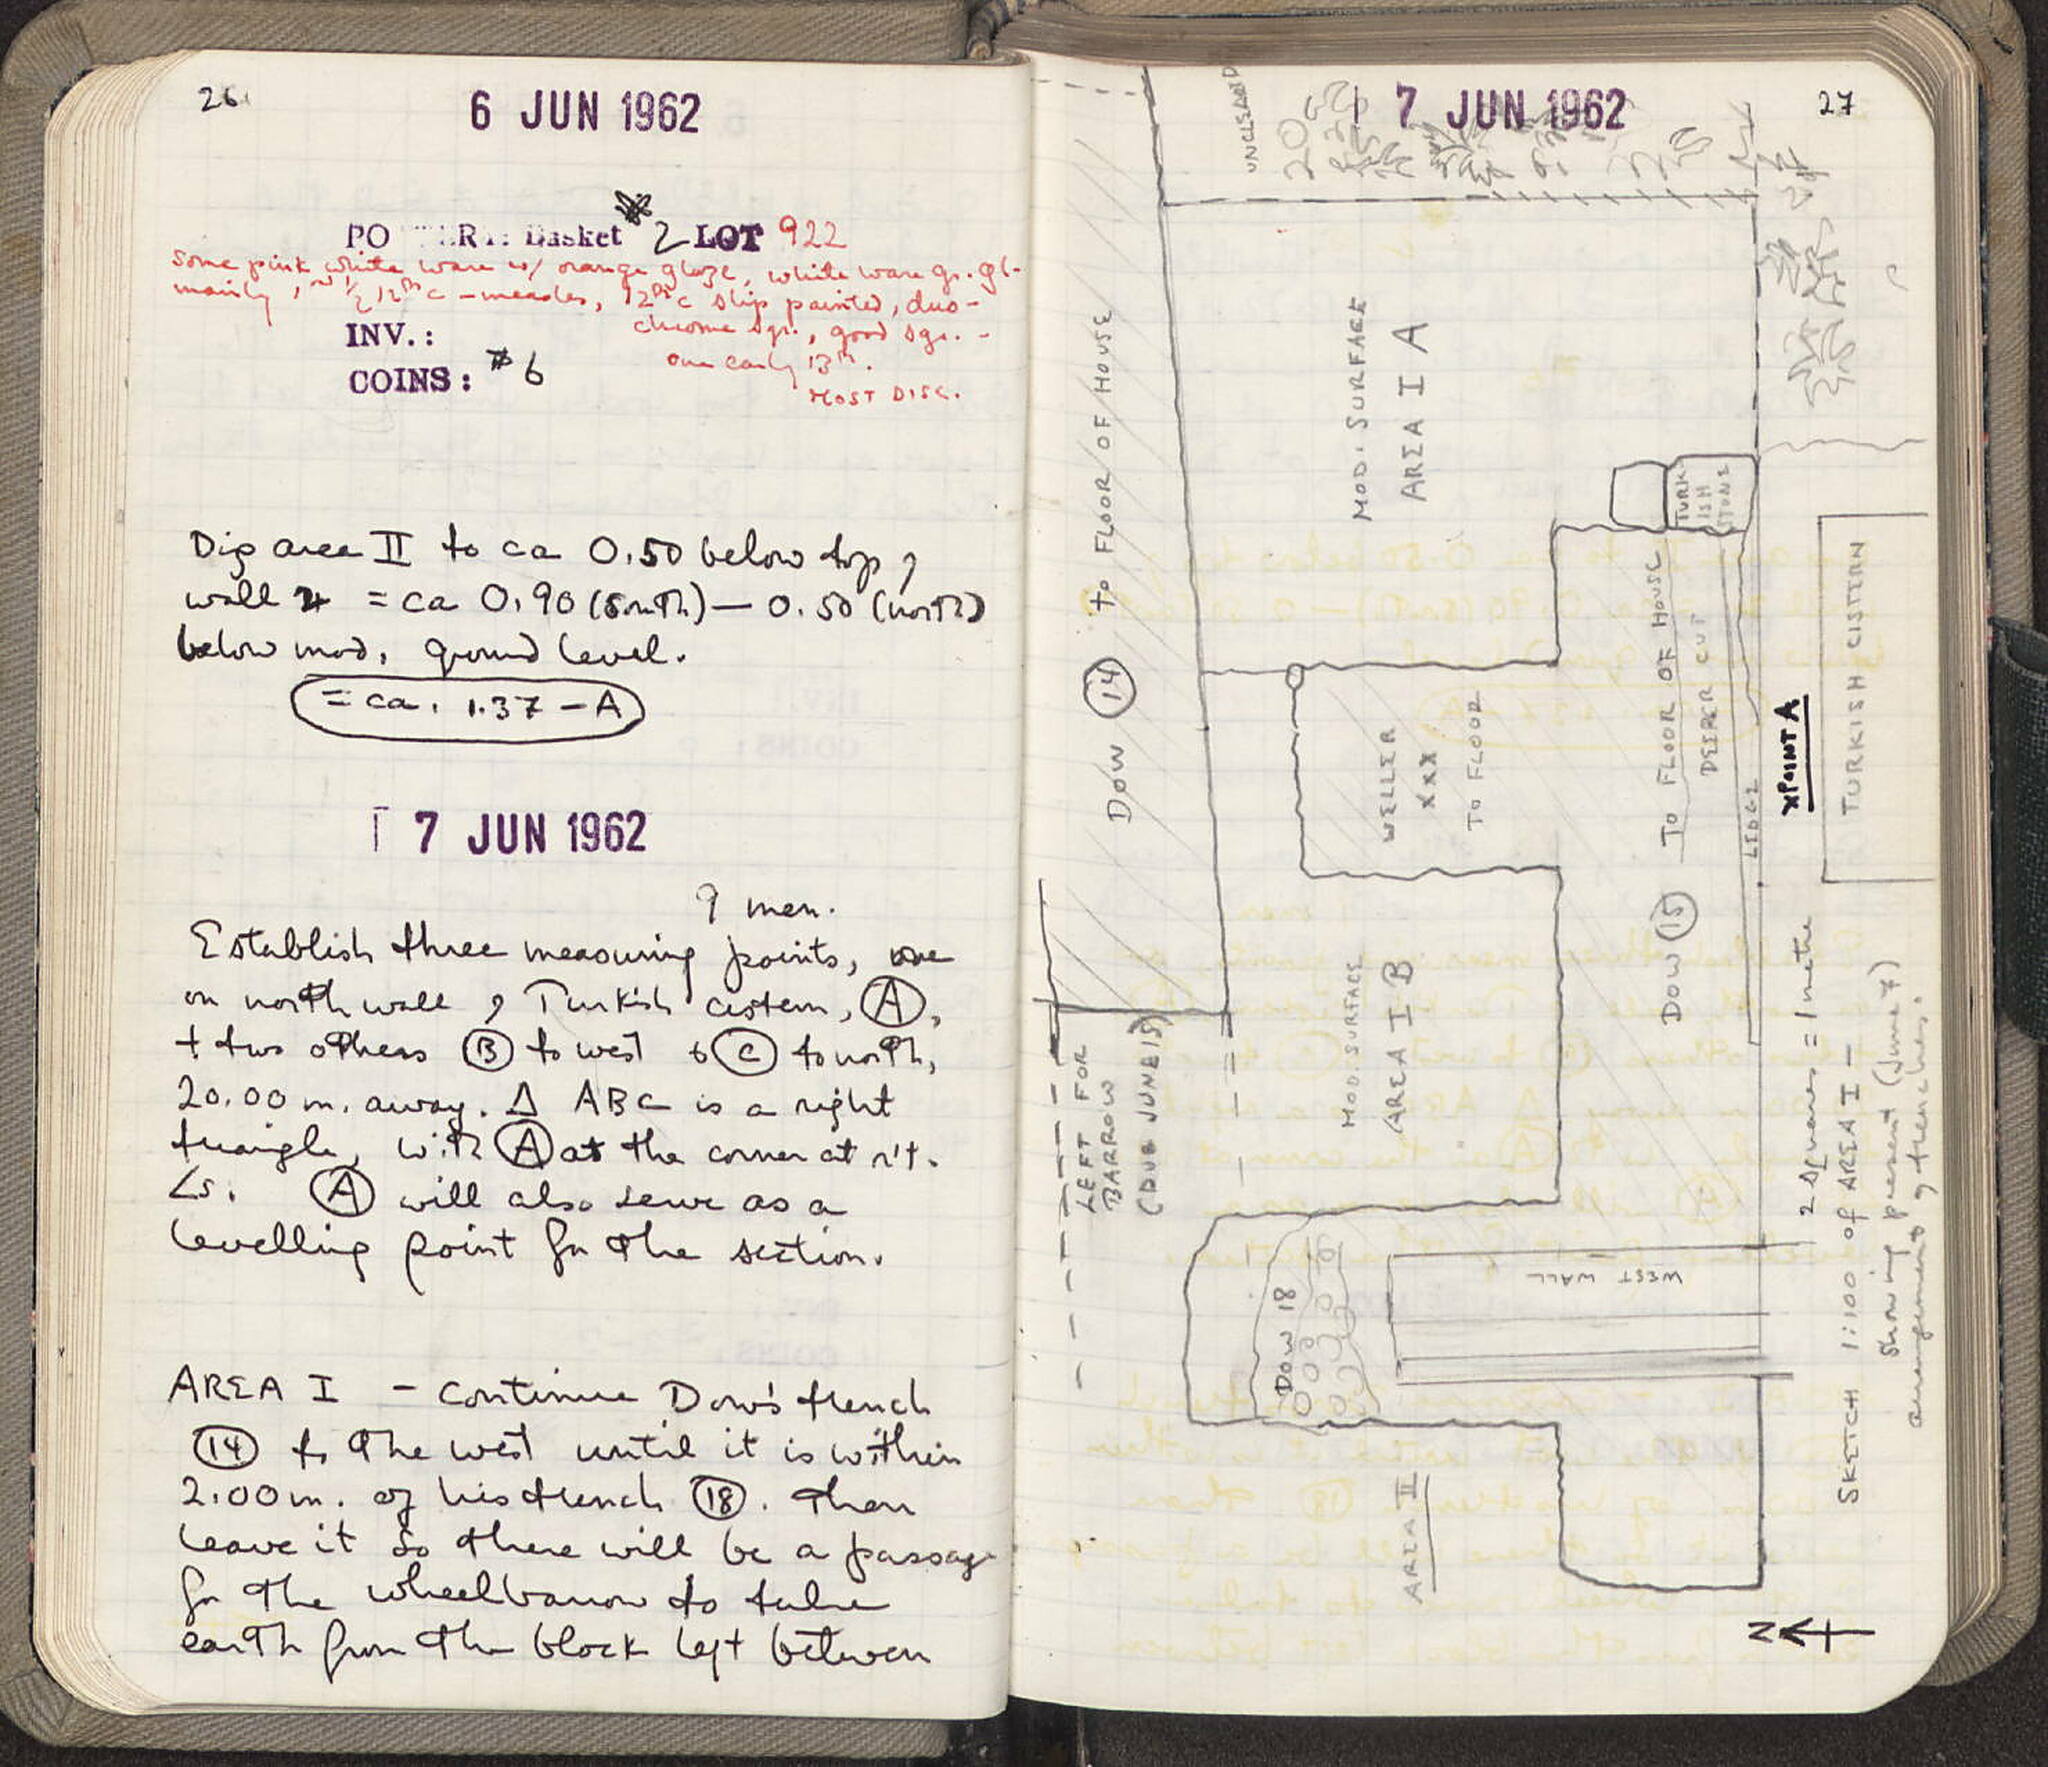 26
6 JUN 1962
POTTERY: Basket # 2 LOT 922
some pink, white ware w/ orange glaze, white ware gr. gl.
mainly, ½ 12th c - measles, 12th c slip painted, duo-
chrome sgr., good sgr. -
one early 13th.
MOST DISC.
INV.:
COINS: # 6
Dig area II to ca 0.50 below top of
wall 4 = ca 0.90 (south) — 0.50 (north)
below mod. ground level.
= ca. 1.37 - A
7 JUN 1962
9 men.
Establish three measuring points, one
on north wall of Turkish cistern, (A),
+ two others (B) to west & (C) to north,
20.00 m. away. Δ ABC is a right
triangle, with (A) at the corner at r't.
∠s. (A) will also serve as a
levelling point for the section.
AREA I - Continue Dow's trench
(14) to the west until it is within
2.00 m. of his trench (18). Then
leave it so there will be a passage
for the wheelbarrow to take
earth from the block left between
7 JUN 1962
27
UNCLEARED
DOW (14) TO FLOOR OF HOUSE
MOD. SURFACE
AREA I A
TURK
ISH
STONE
WELLER
XXX
TO FLOOR
DOW (15) TO FLOOR OF HOUSE
DEEPER CUT
LEDGE
X POINT A
TURKISH CISTERN
LEFT FOR
BARROW
(DUG JUNE 15)
MOD. SURFACE
AREA I B
DOW 18
WEST WALL
AREA II
2 squares = 1 metre
SKETCH 1:100 of AREA I —
showing present (June 7)
arrangement of trenches.
N